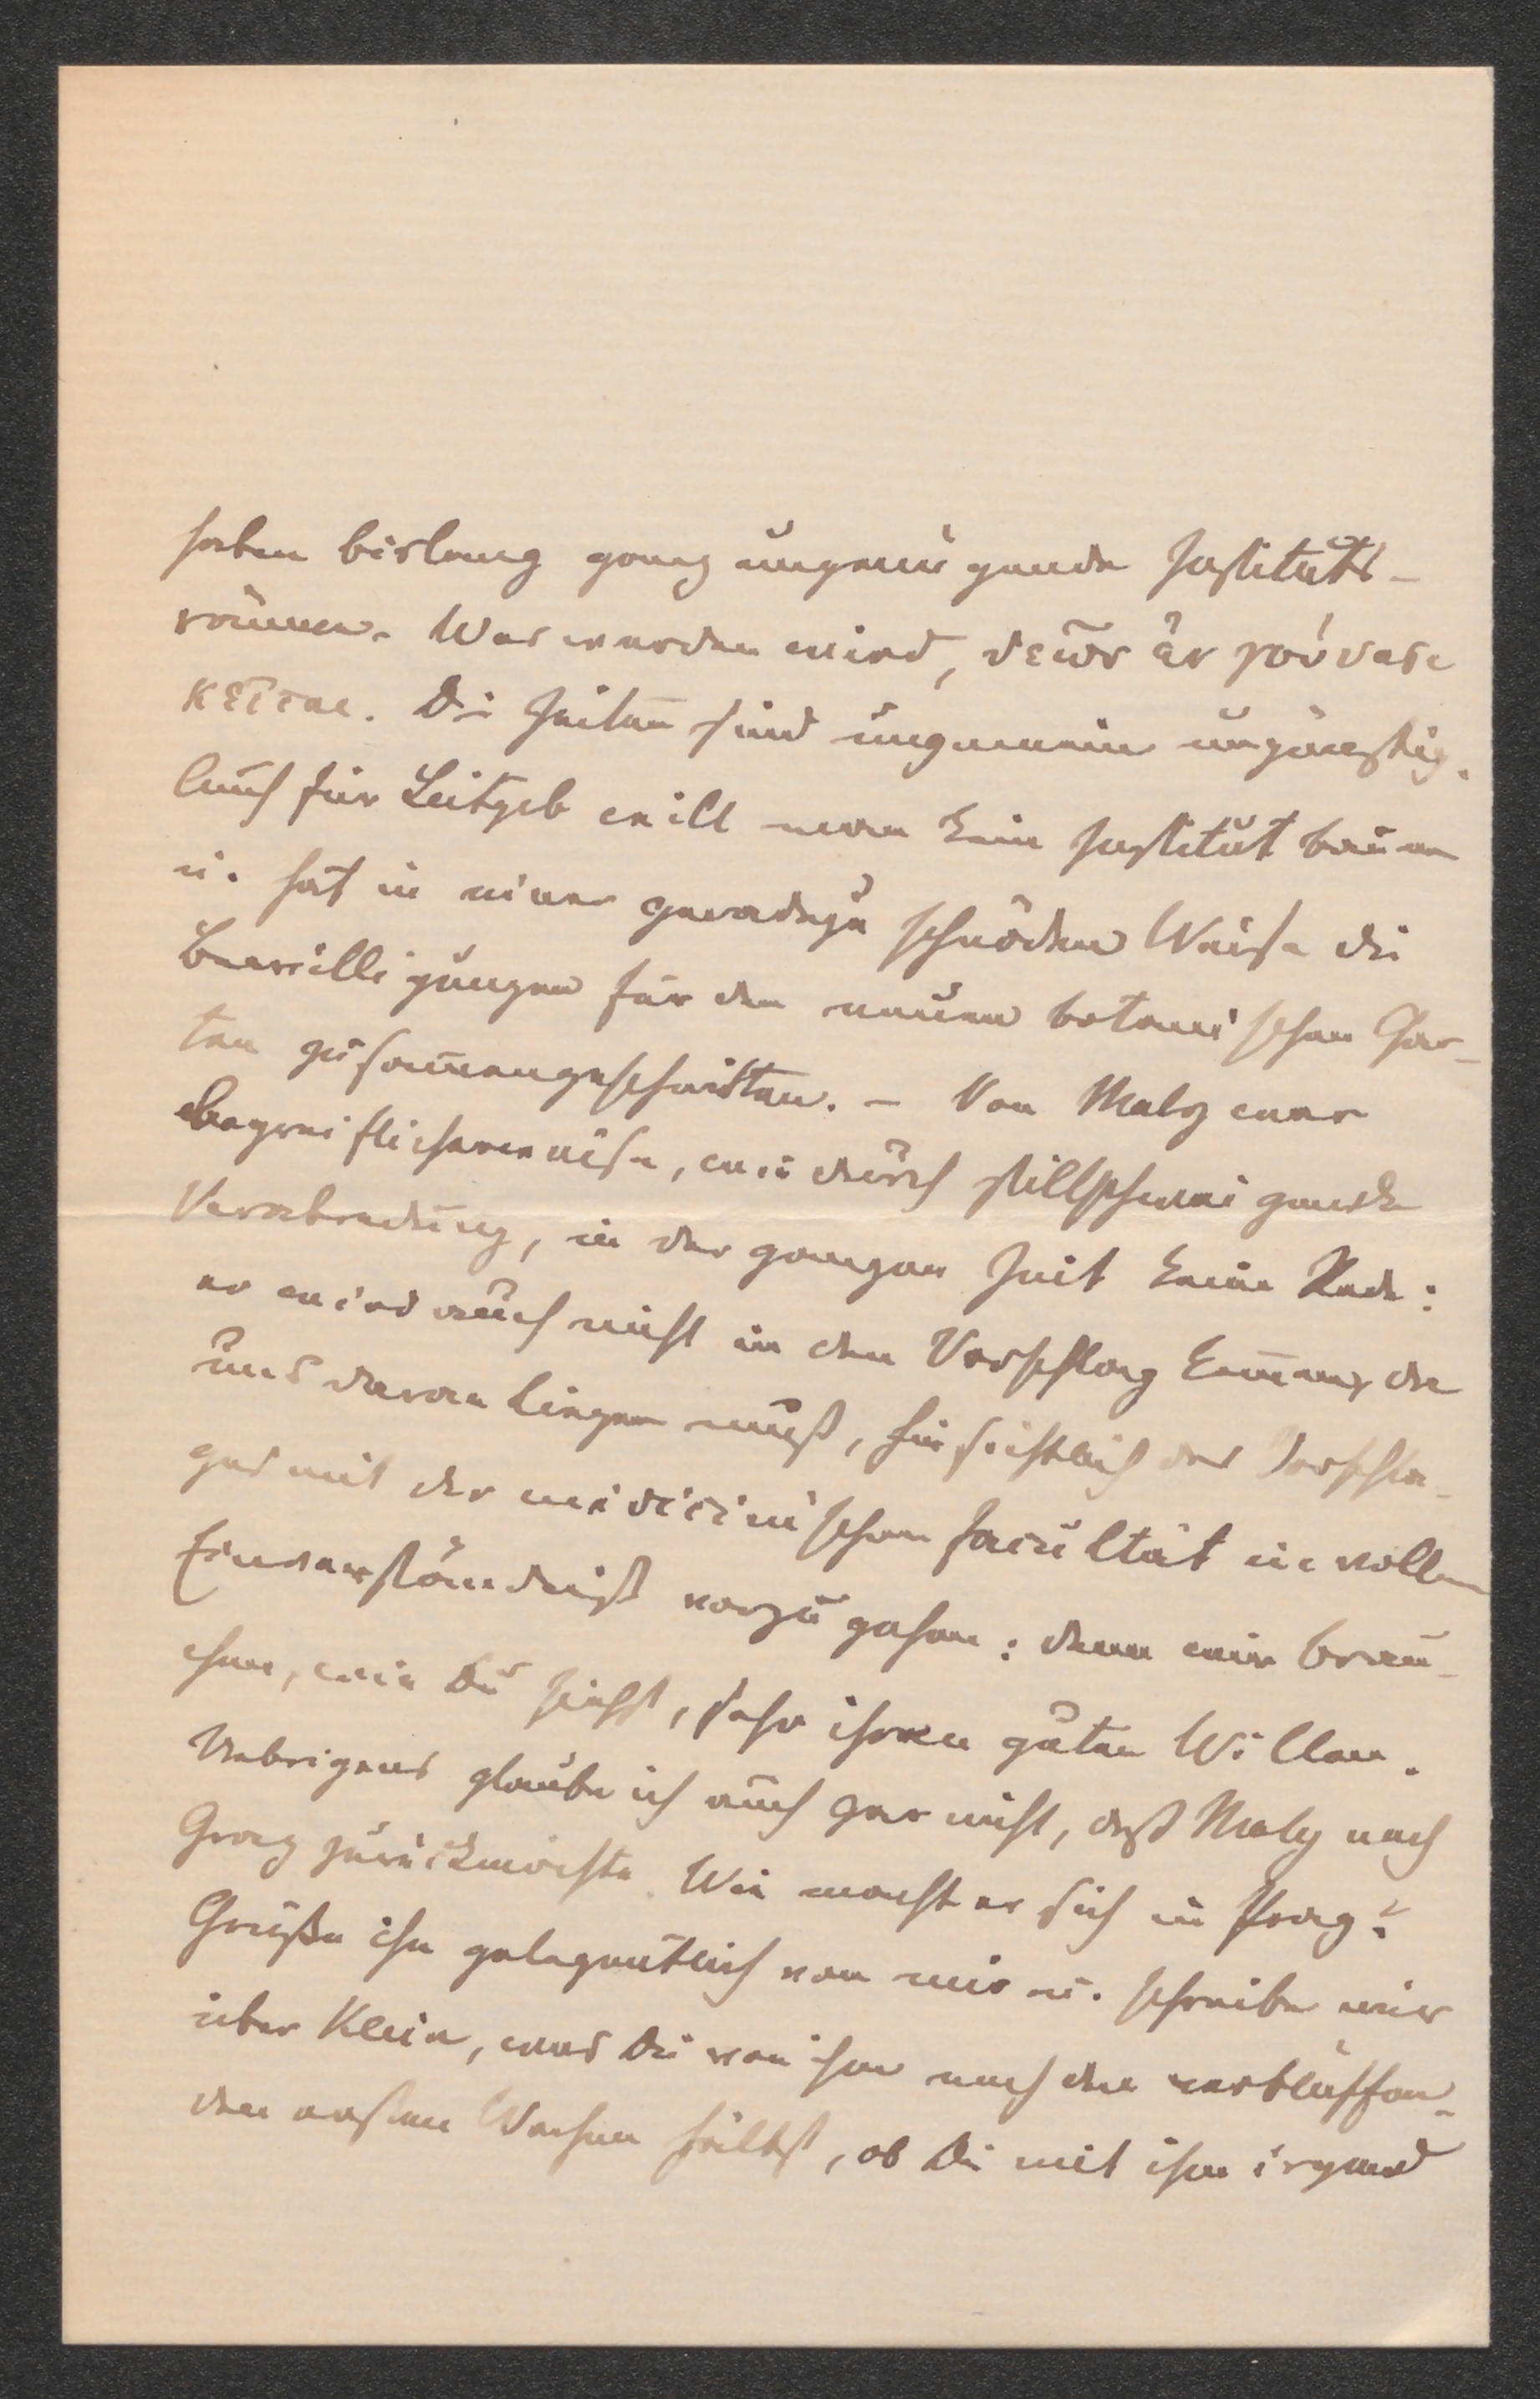 haben bislang ganz ungenügende Instituts-
räume. Was werden wird, θεῶν ἐν γούνασι
κεῖται. Die Zeiten sind ungemein ungünstig.
Auch für Leitgeb will man kein Institut bauen
u. hat in einer geradezu schnöden Weise die
Bewilligungen für den neuen botanischen Gar-
ten zusam̅engeschnitten. – Von Maly war
begreiflicherweise, wie durch stillschweigende
Verabredung, in der ganzen Zeit keine Rede:
er wird auch nicht in den Vorschlag kom̅en, da
uns daran liegen muß, hinsichtlich des Vorschla-
ges mit der medicinischen Facultät in vollem
Einverständniß vorzugehen: denn wir brau-
chen, wie Du siehst, sehr ihren guten Willen.
Uebrigens glaube ich auch gar nicht, daß Maly nach
Graz zurückmöchte. Wie macht er sich in Prag?
Grüße ihn gelegentlich von mir u. schreibe mir
über Klein, was Du von ihm nach den verblüffen-
den ersten Wochen hältst, ob Du mit ihm irgend